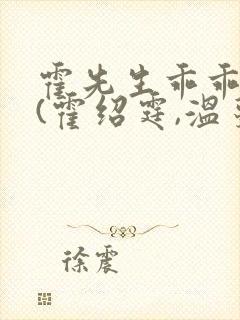 霍先生乖乖
(霍绍霆,温
徐震